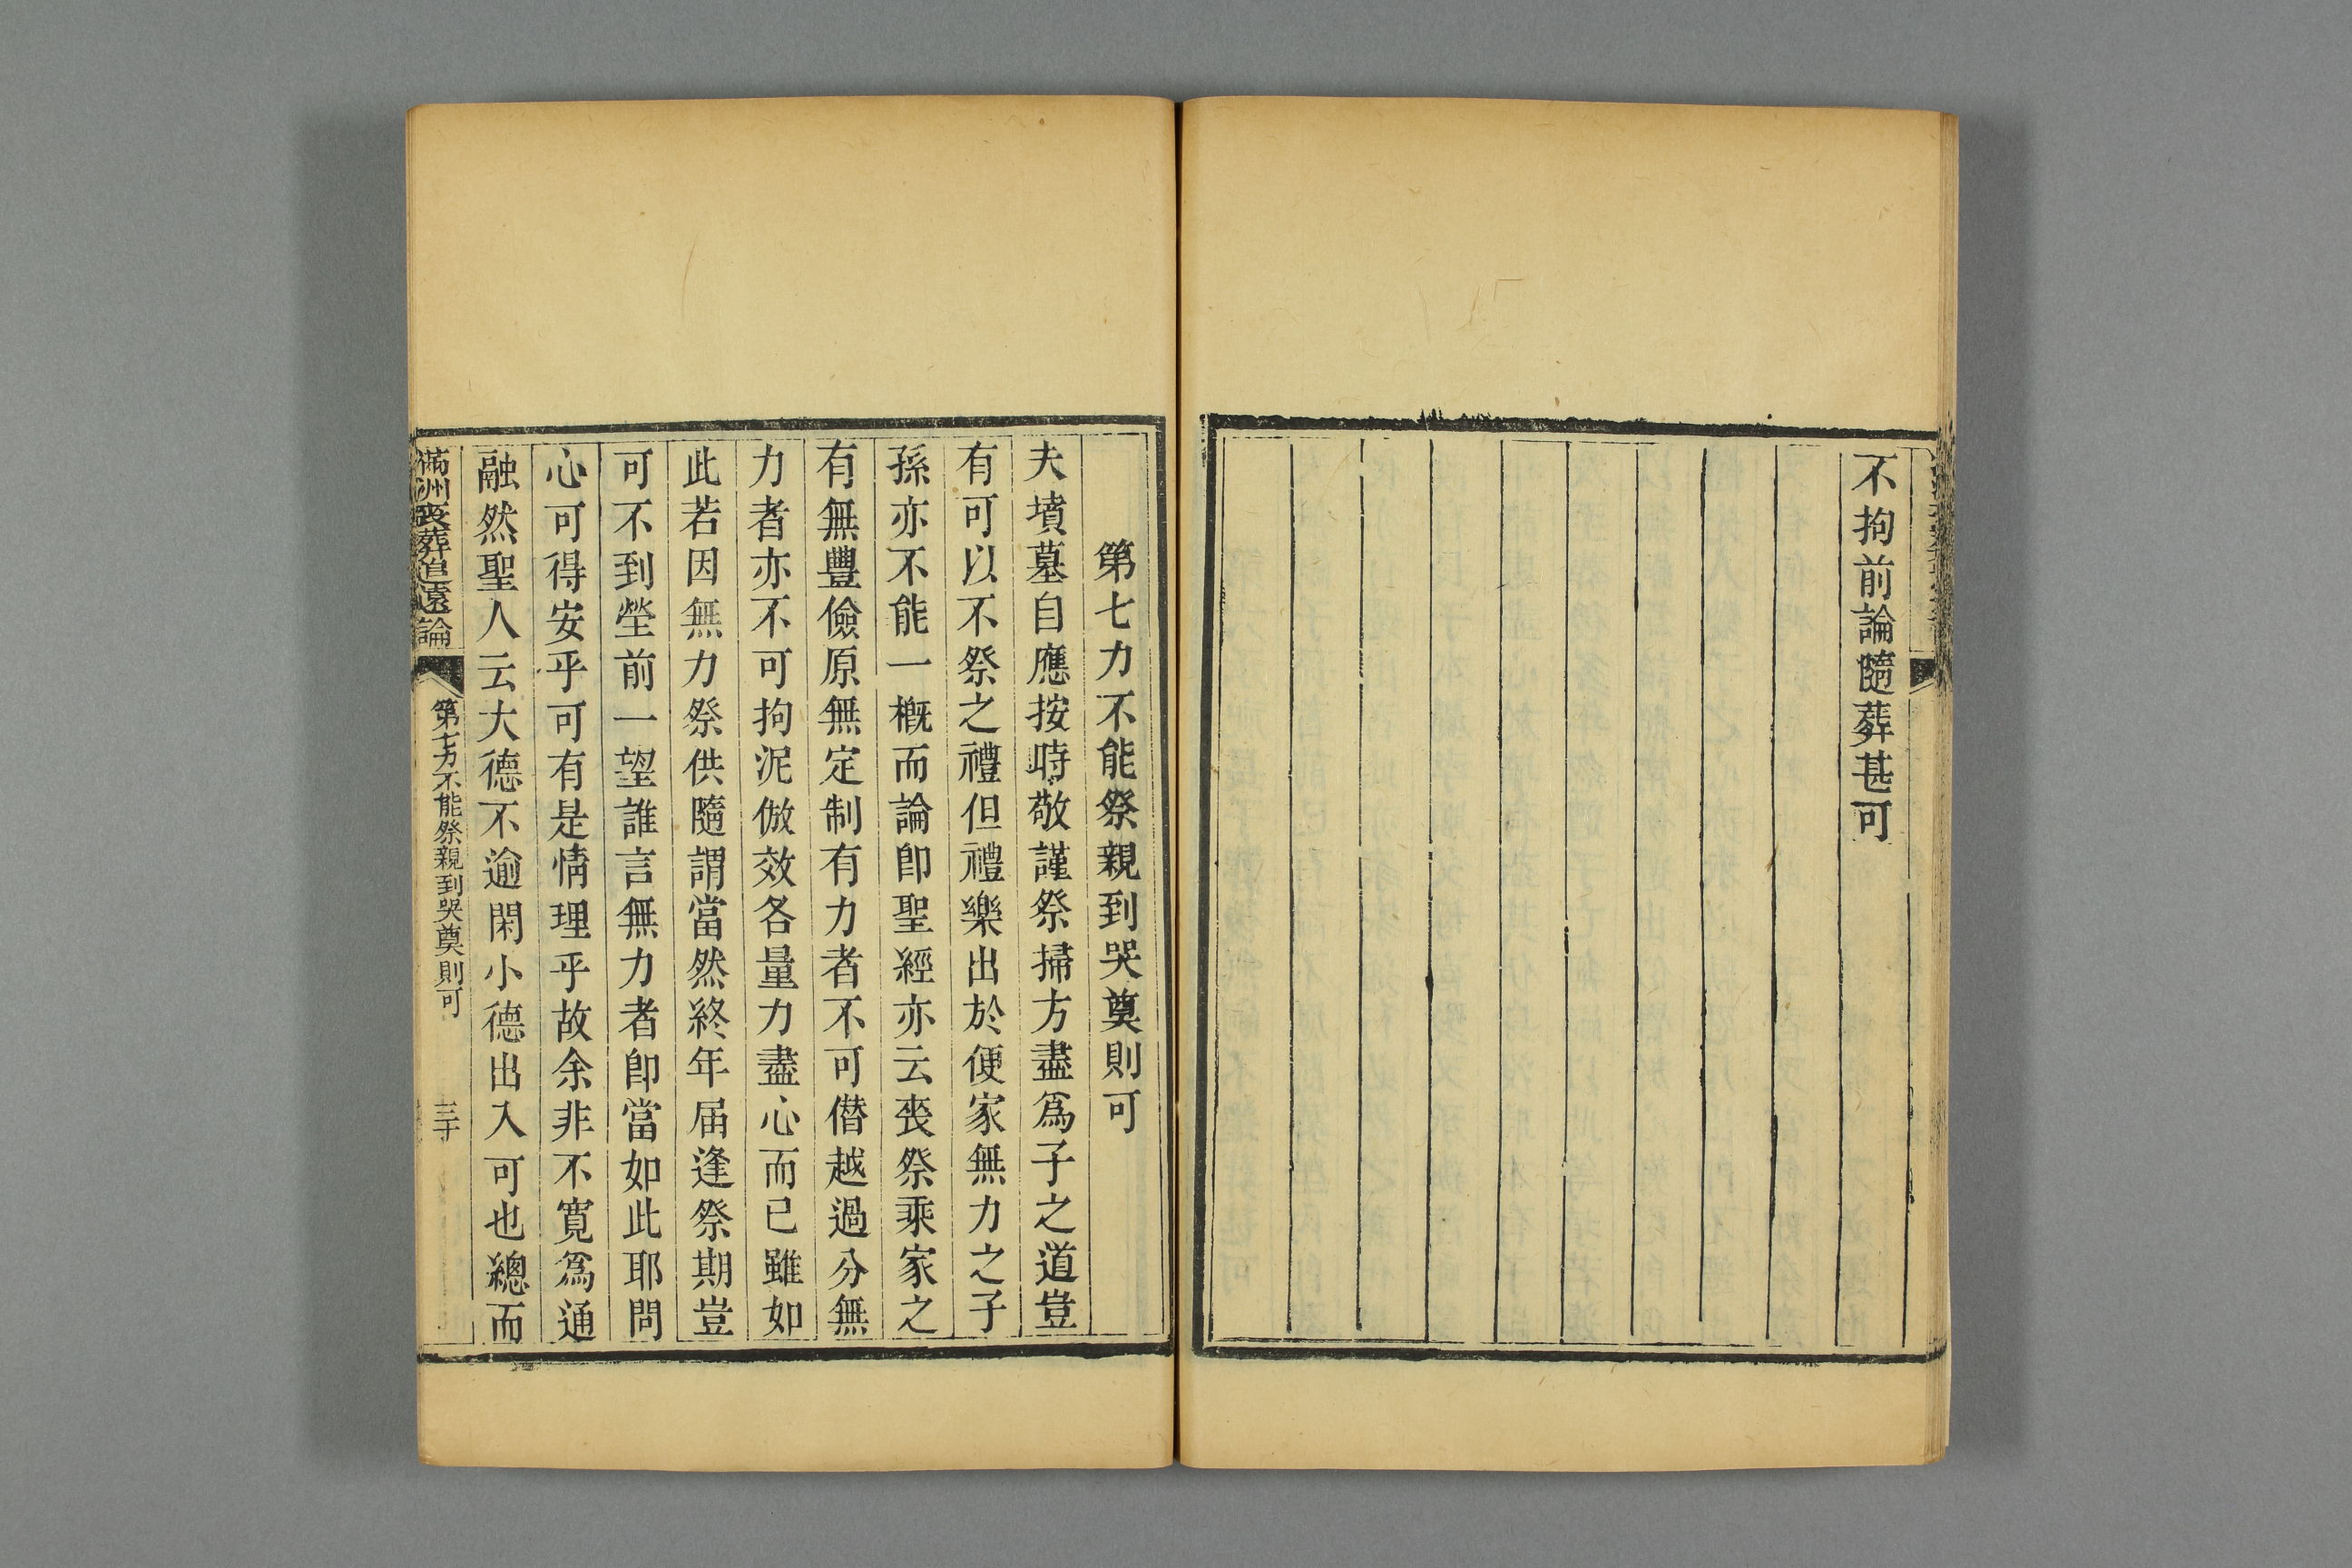 不拘前論隨葬甚可
第七力不能祭親到哭奠則可
夫墳墓自應按時敬謹祭掃方盡爲子之道豈
有可以不祭之禮但禮樂出於便家無力之子
孫亦不能一槪而論卽聖經亦云喪祭乘家之
有無豐儉原無定制有力者不可僭越過分無
力者亦不可拘泥倣效各量力盡心而已雖如
此若因無力祭供隨謂當然終年届逢祭期豈
可不到塋前一望誰言無力者卽當如此耶問
心可得安乎可有是情理乎故余非不寬爲通
融然聖人云大德不逾閑小德出入可也總而
滿洲喪葬追遠論
第七力不能祭親到哭奠則可
三十